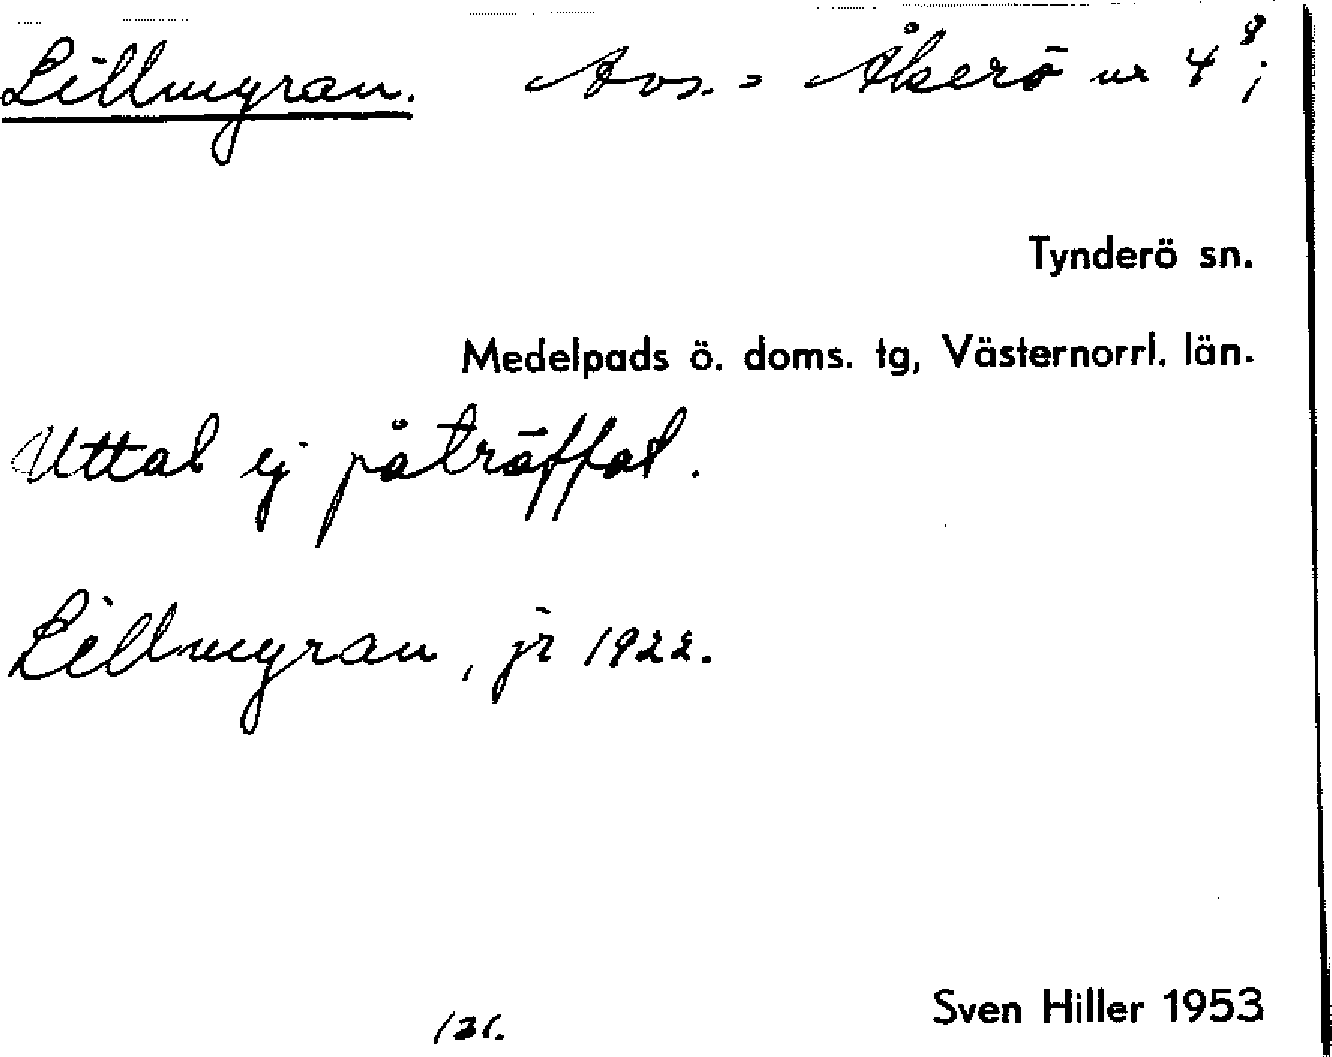 Lillmyran. Avs. = Åkerö nr 4⁸;
Tynderö sn.
Medelpads ö. doms. tg, Västernorrl. län.
Uttal ej påträffat.
Lillmyran, jr 1922.
Sven Hiller 1953
121.